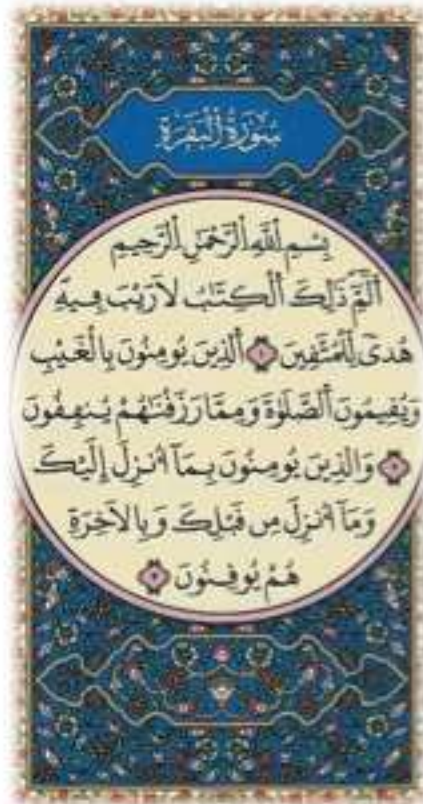 سُورَةُ الْبَقَرَةِ
بِسْمِ اللَّهِ الرَّحْمَٰنِ الرَّحِيمِ
أَلَمِّ ذَٰلِكَ الْكِتَٰبُ لَا رَيْبَ فِيهِ
هُدىً لِّلْمُتَّقِينَ ١ الذِينَ يُومِنُونَ بِالْغَيْبِ
وَيُقِيمُونَ الصَّلَوٰةَ وَمِمَّا رَزَقْنَٰهُمْ يُنفِقُونَ
٢ وَالذِينَ يُومِنُونَ بِمَآ أُنزِلَ إِلَيْكَ
وَمَآ أُنزِلَ مِن قَبْلِكَ وَبِالَاخِرَةِ
هُمْ يُوقِنُونَ ٣